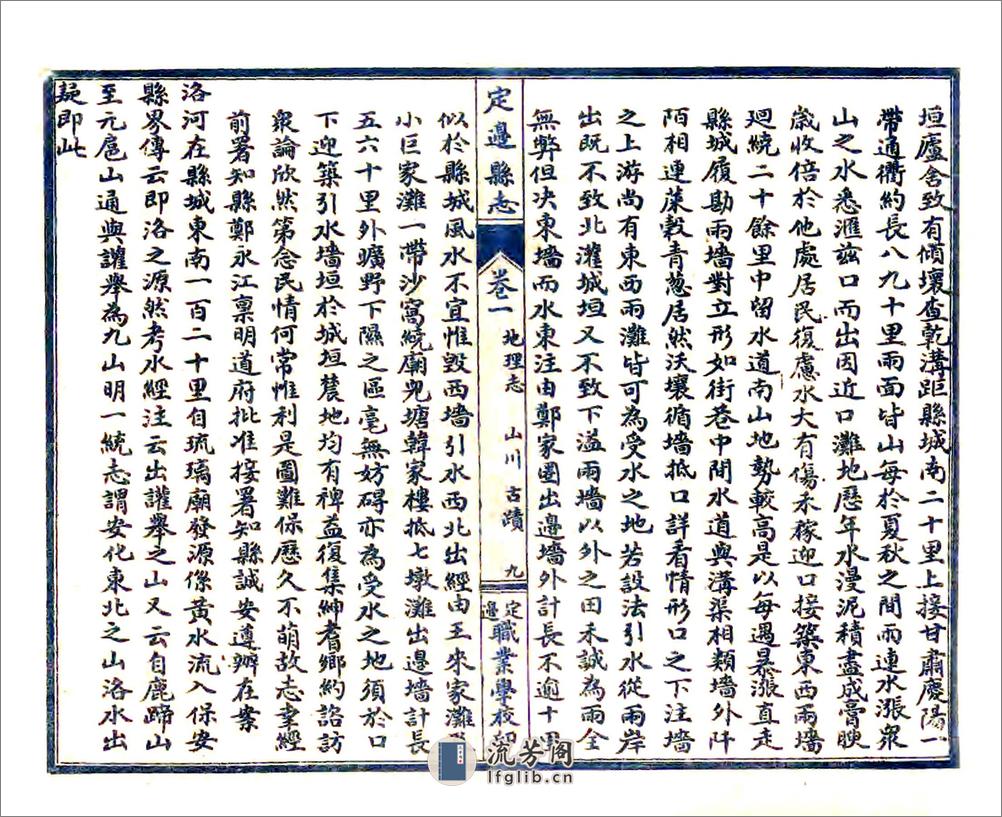 垣廬舍致有傾壞查乾溝距縣城南二十里上接甘肅慶陽一
帶通衢約長八九十里兩面皆山每於夏秋之間雨連水漲衆
山之水悉滙茲口而出因近口灘地歷年水漫泥積盡成膏腴
歲收倍於他處居民復慮水大有傷禾稼迎口接築東西兩墻
廻繞二十餘里中留水道南山地勢較高是以每遇暴漲直走
縣城履勘兩墻對立形如街巷中開水道與溝渠相類墻外阡
陌相連菉穀青葱居然沃壤循墻抵口詳看情形口之下注墻
之上游尚有東西兩灘皆可為受水之地若設法引水從兩岸
出既不致北灌城垣又不致下溢兩墻以外之田禾誠為兩全
無弊但决東墻而水東注由鄭家圈出邊墻外計長不逾十里
定邊縣志
卷一
地理志 山川 古蹟 九
定邊職業學校印
似於縣城風水不宜惟毀西墻引水西北出經由王來家灘
小巨家灘一帶沙窩繞廟兒塘韓家樓抵七墩灘出邊墻計長
五六十里外曠野下隰之區毫無妨碍亦為受水之地須於口
下迎築引水墻垣於城垣農地均有裨益復集紳耆鄉約諮訪
衆論欣然第念民情何常惟利是圖難保歷久不萌故志幸經
前署知縣鄭永江稟明道府批准接署知縣誠安遵辦在案
洛河在縣城東南一百二十里自琉璃廟發源係黃水流入保安
縣界傳云即洛之源然考水經注云出讙舉之山又云自鹿蹄山
至元扈山通典讙舉為九山明一統志謂安化東北之山洛水出
疑即此
流芳阁
lfglib.cn